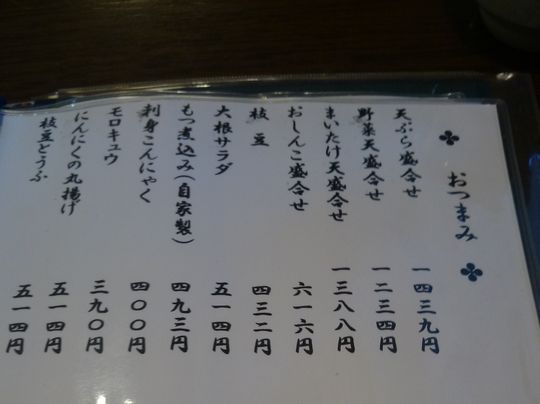 おつまみ
天ぷら盛合せ 一四三九円
野菜天盛合せ 一二三四円
まいたけ天盛合せ 一三八八円
おしんこ盛合せ 六一六円
枝豆 四三二円
大根サラダ 五一四円
もつ煮込み(自家製) 四九三円
刺身こんにゃく 四〇〇円
モロキュウ 三九〇円
にんにくの丸揚げ 五一四円
枝豆とうふ 五一四円